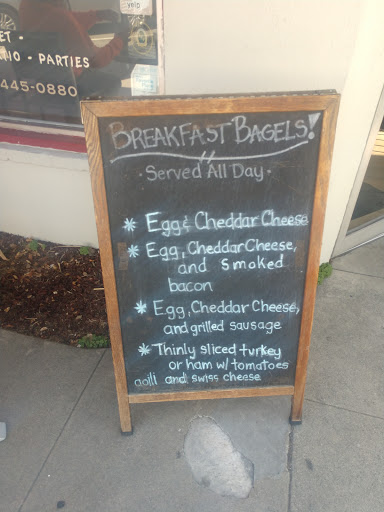 ET -
IO - PARTIES
445-0880
BREAKFAST BAGELS!
· Served All Day ·
* Egg & Cheddar Cheese
* Egg, Cheddar Cheese,
and smoked
bacon
* Egg, Cheddar Cheese,
and grilled sausage
* Thinly sliced turkey
or ham w/ tomatoes
aoili and swiss cheese